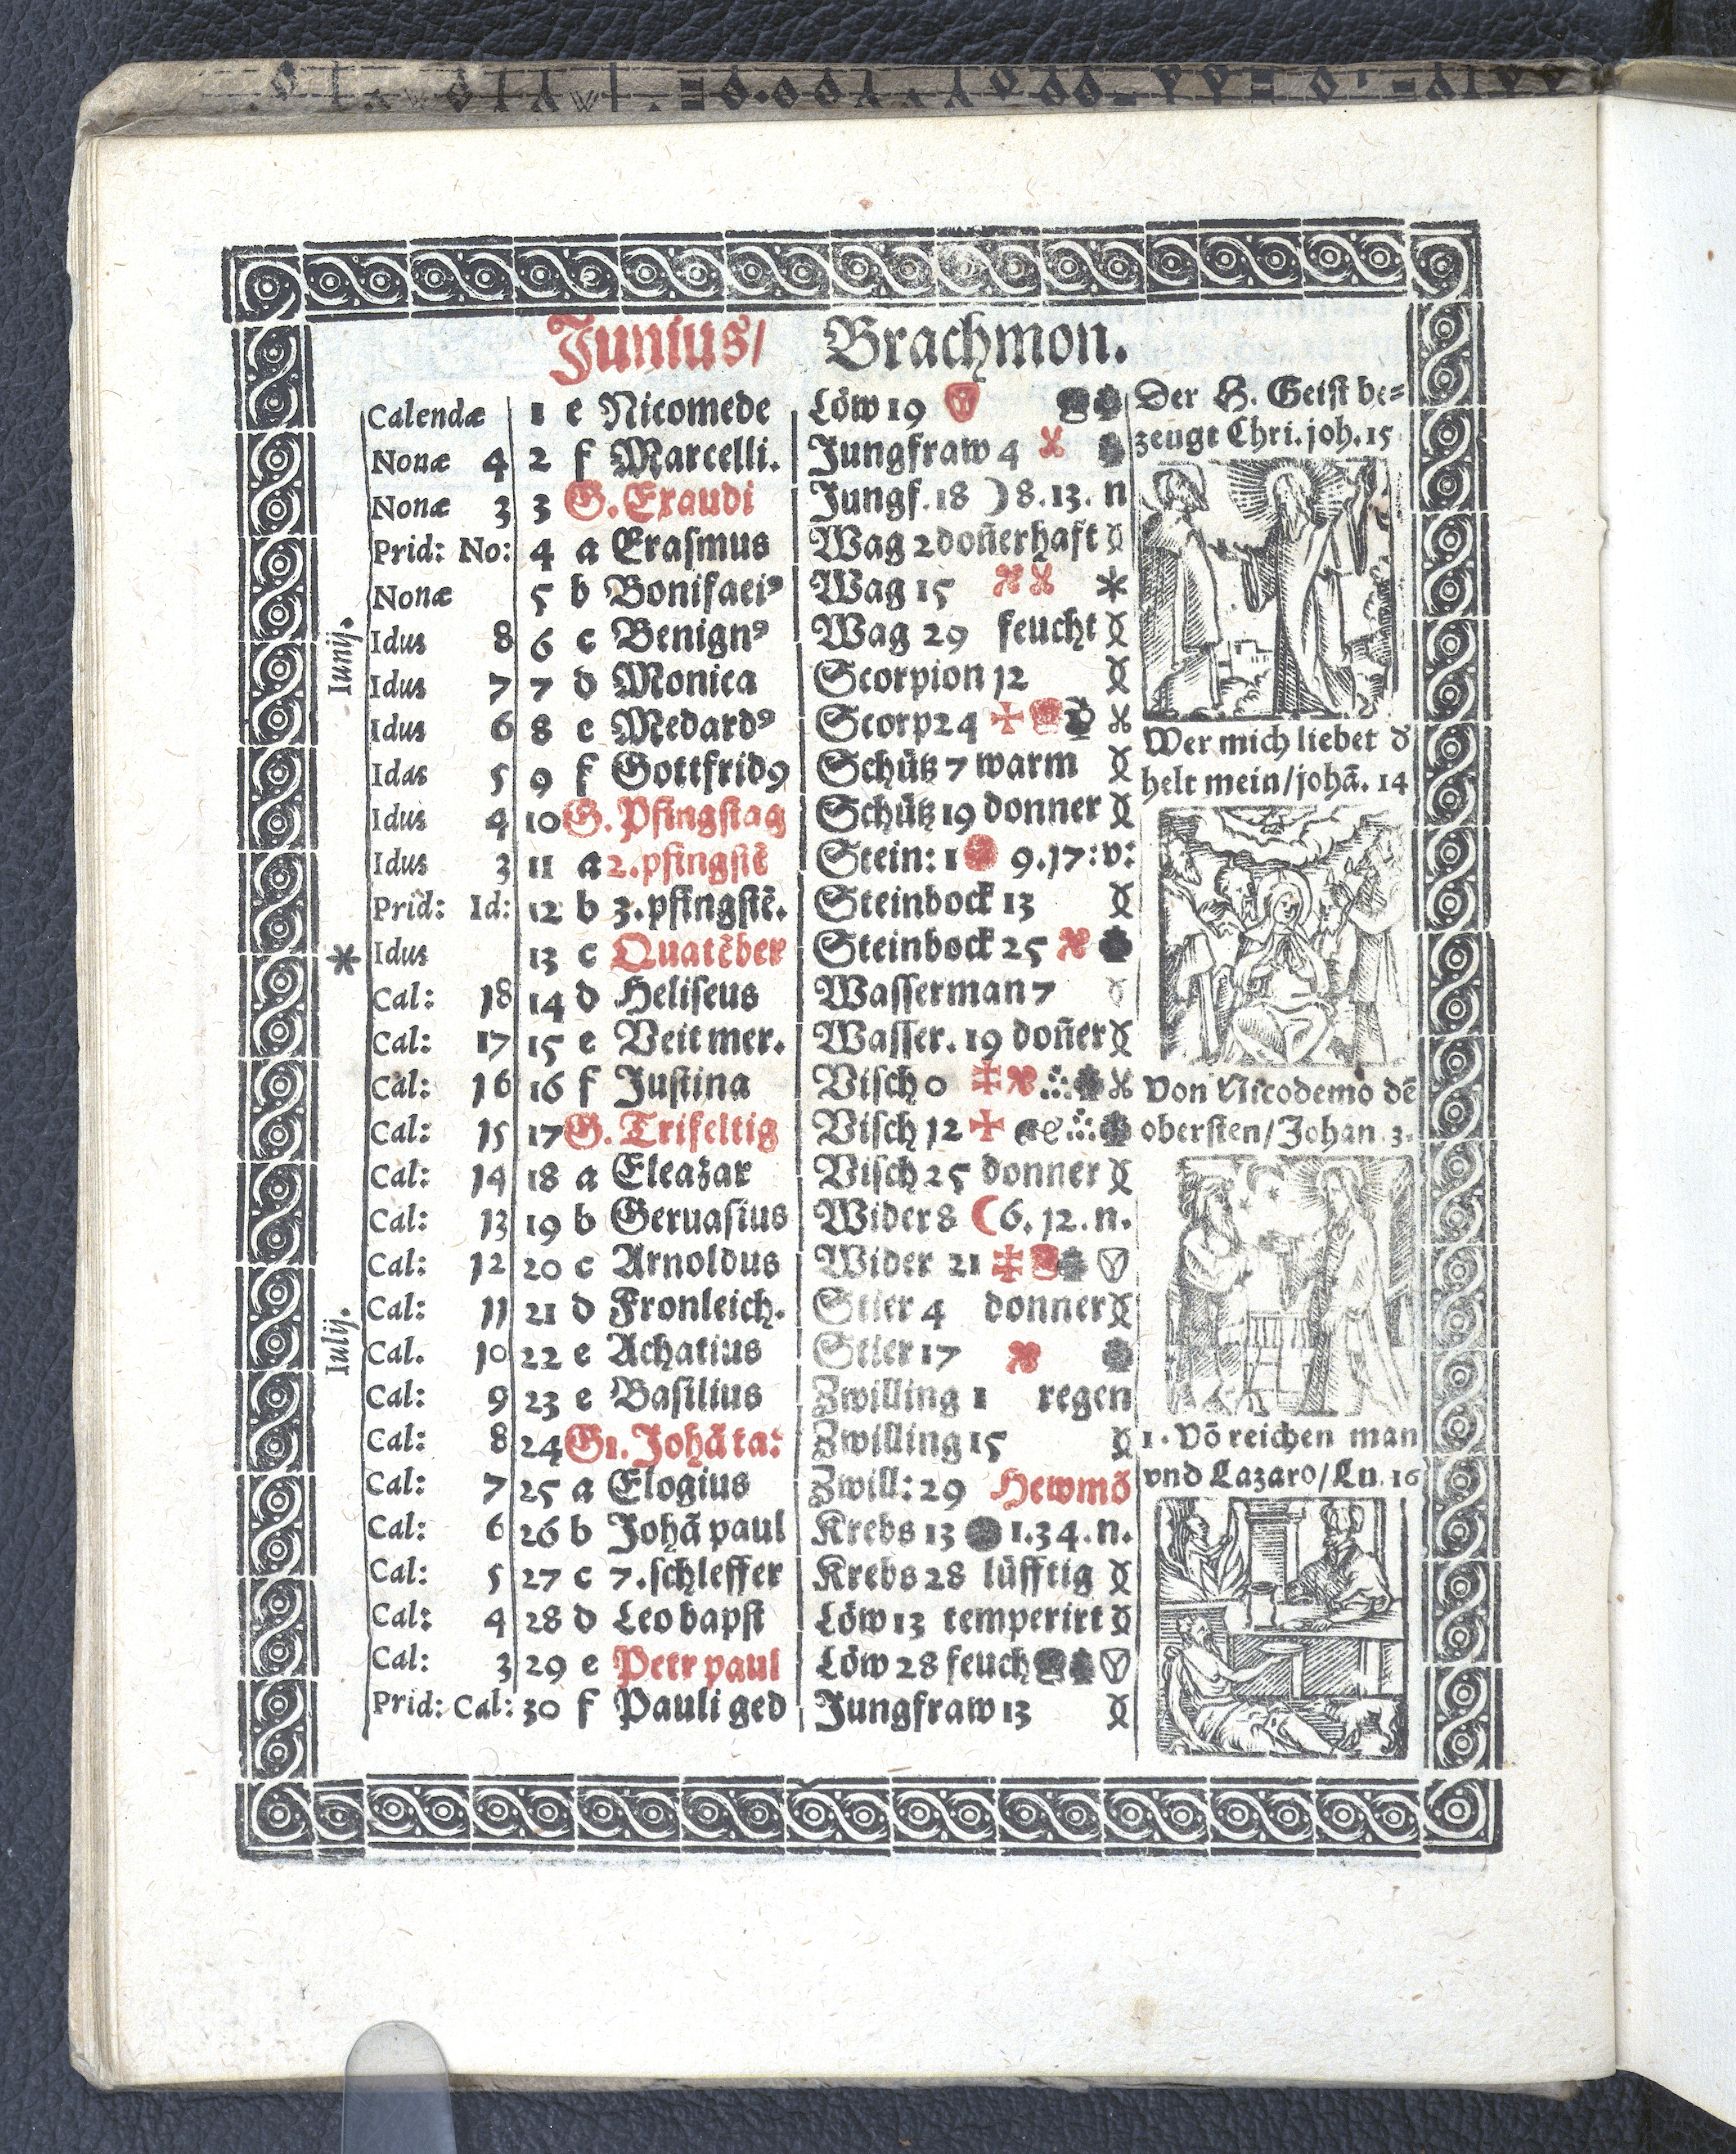 Junius/ Brachmon.
Calendæ 1 e Nicomede Löw 19
Nonæ 4 2 f Marcelli. Jungfraw 4
Nonæ 3 3 G. Exaudi Jungf. 18 ☽ 8. 13. n
Prid: No: 4 a Erasmus Wag 2 doñerhaft
Nonæ 5 b Bonifaciꝰ Wag 15
Idus 8 6 c Benignꝰ Wag 29 feucht
Idus 7 7 d Monica Scorpion 12
Idus 6 8 e Medardꝰ Scorp 24
Idus 5 9 f Gottfridꝰ Schütz 7 warm
Idus 4 10 G. Pfingstag Schütz 19 donner
Idus 3 11 a 2. pfingstẽ Stein: 1 9. 17: v:
Prid: Id: 12 b 3. pfingstẽ. Steinbock 13
Idus 13 c Quatẽber Steinbock 25
Cal: 18 14 d Heliseus Wasserman 7
Cal: 17 15 e Veit mer. Wasser. 19 doñer
Cal: 16 16 f Justina Visch 0
Cal: 15 17 G. Trifeltig Visch 12
Cal: 14 18 a Eleazar Visch 25 donner
Cal: 13 19 b Geruasius Wider 8 ☾ 6. 12. n.
Cal: 12 20 c Arnoldus Wider 21
Cal: 11 21 d Fronleich. Stier 4 donner
Cal. 10 22 e Achatius Stier 17
Cal: 9 23 e Basilius Zwilling 1 regen
Cal: 8 24 G1. Johã ta: Zwilling 15
Cal: 7 25 a Elogius Zwill: 29 Hewmõ
Cal: 6 26 b Johã paul Krebs 13 1. 34. n.
Cal: 5 27 c 7. schleffer Krebs 28 lüfftig
Cal: 4 28 d Leo bapst Löw 13 temperirt
Cal: 3 29 e Petr paul Löw 28 feuch
Prid: Cal: 30 f Pauli ged Jungfraw 13
Iunij.
Iulij.
Der H. Geist be=
zeugt Chri. joh. 15
Wer mich liebet d
helt mein/johã. 14
Von Nicodemo dẽ
obersten/Johan. 3.
1. Võ reichen man
vnd Lazaro/Lu. 16